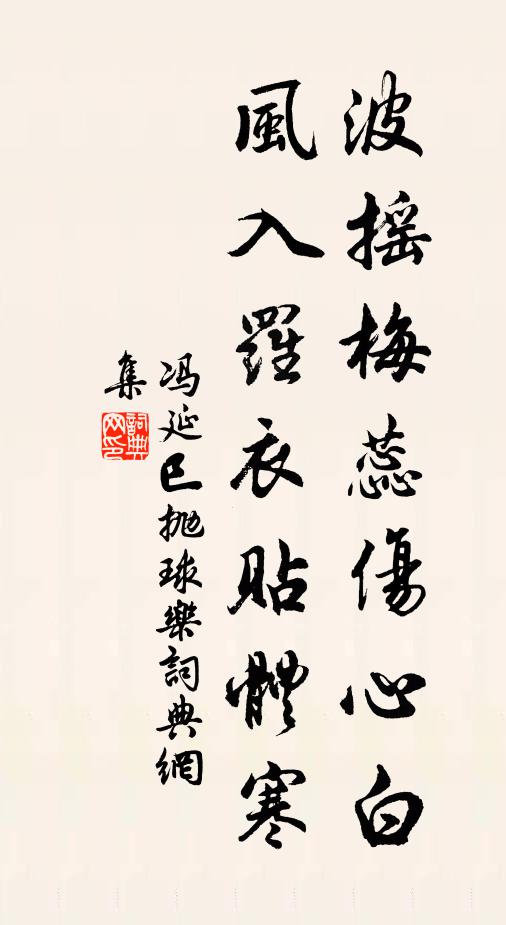 波摇梅蕊傷心白
風入羅衣貼體寒
冯延巳抛球樂詞典網
集
詞典网印